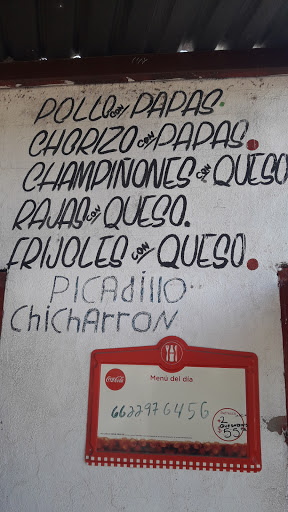 POLLO con PAPAS.
CHORIZO con PAPAS.
CHAMPIÑONES con QUESO
RAJAS con QUESO.
FRIJOLES con QUESO.
PICAdillo
ChichARRON
Coca-Cola
Menú del día
6622976456
+2
$55